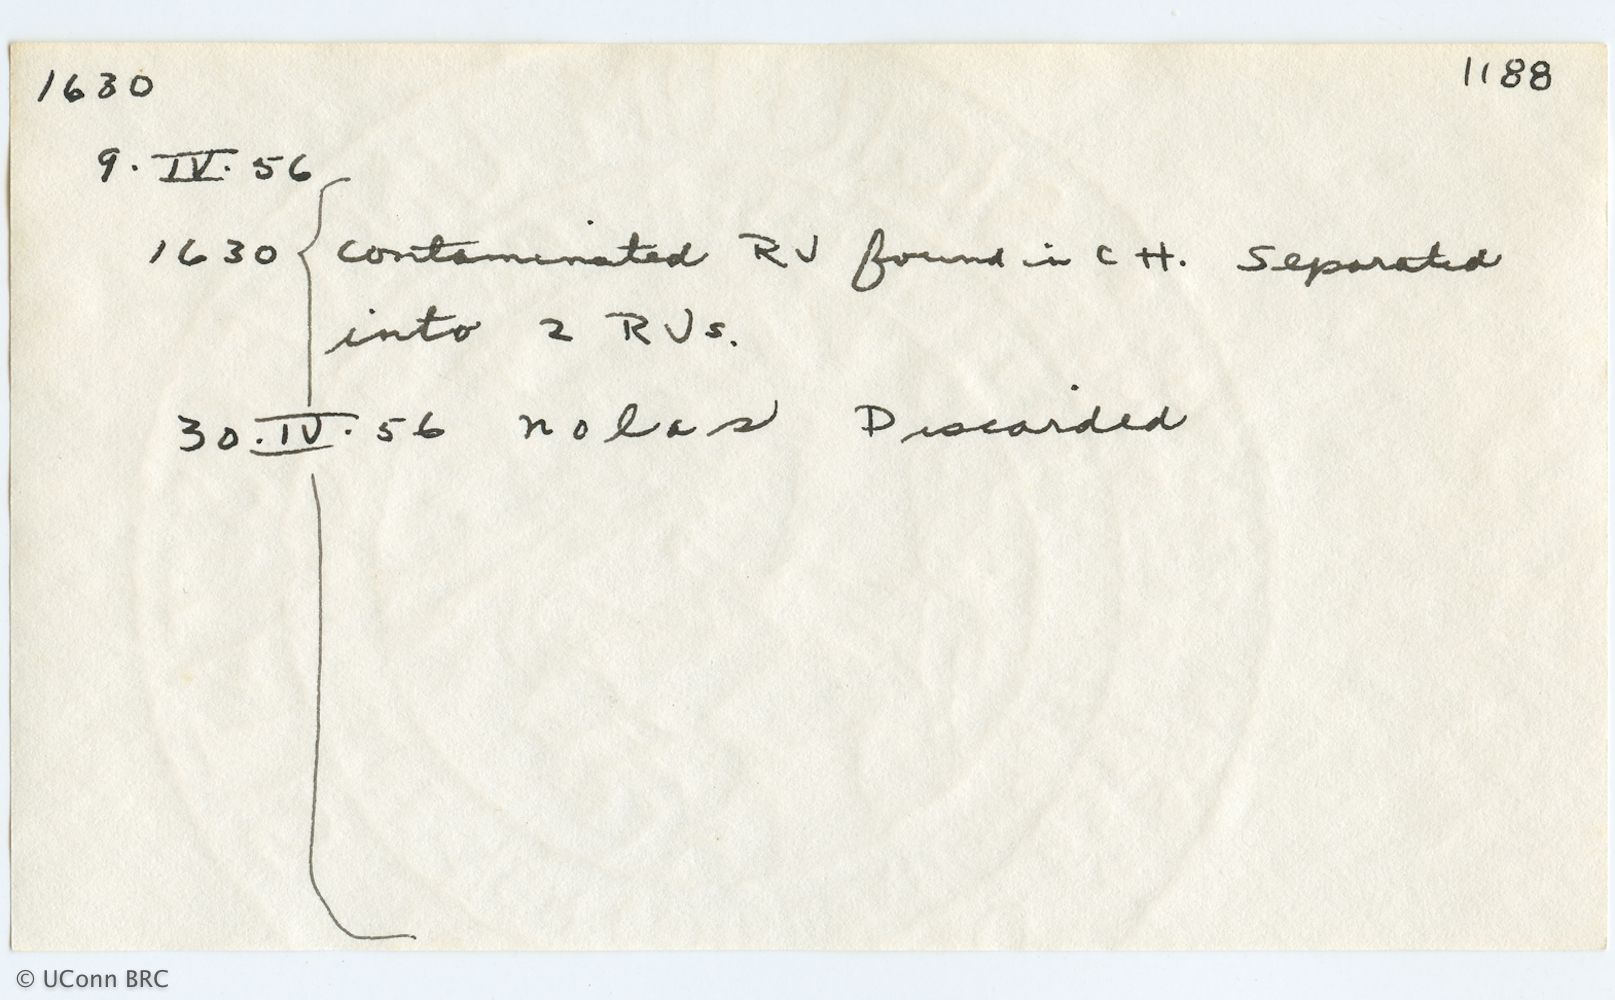 1630 1188
9. IV. 56
1630 contaminated RV found in CH. Separated
into 2 RVs.
30. IV. 56 no las Discarded
© UConn BRC